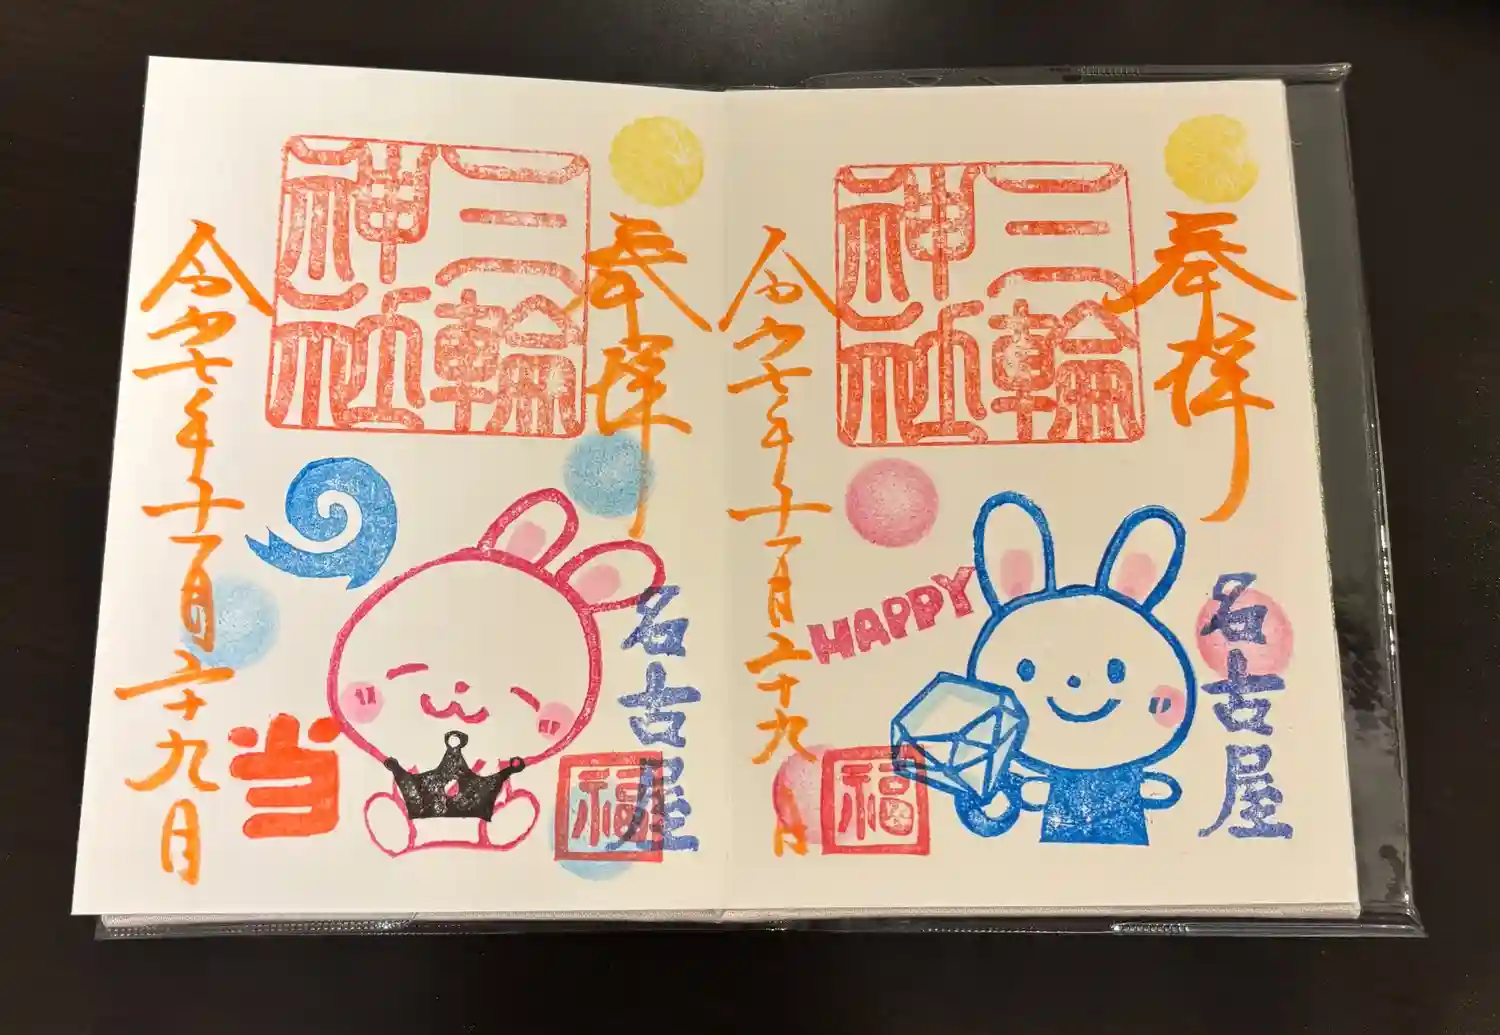 奉拝
名古屋
三輪
神社
HAPPY
福
令和七年十一月二十九日
奉拝
名古屋
三輪
神社
福
当
令和七年十一月二十九日